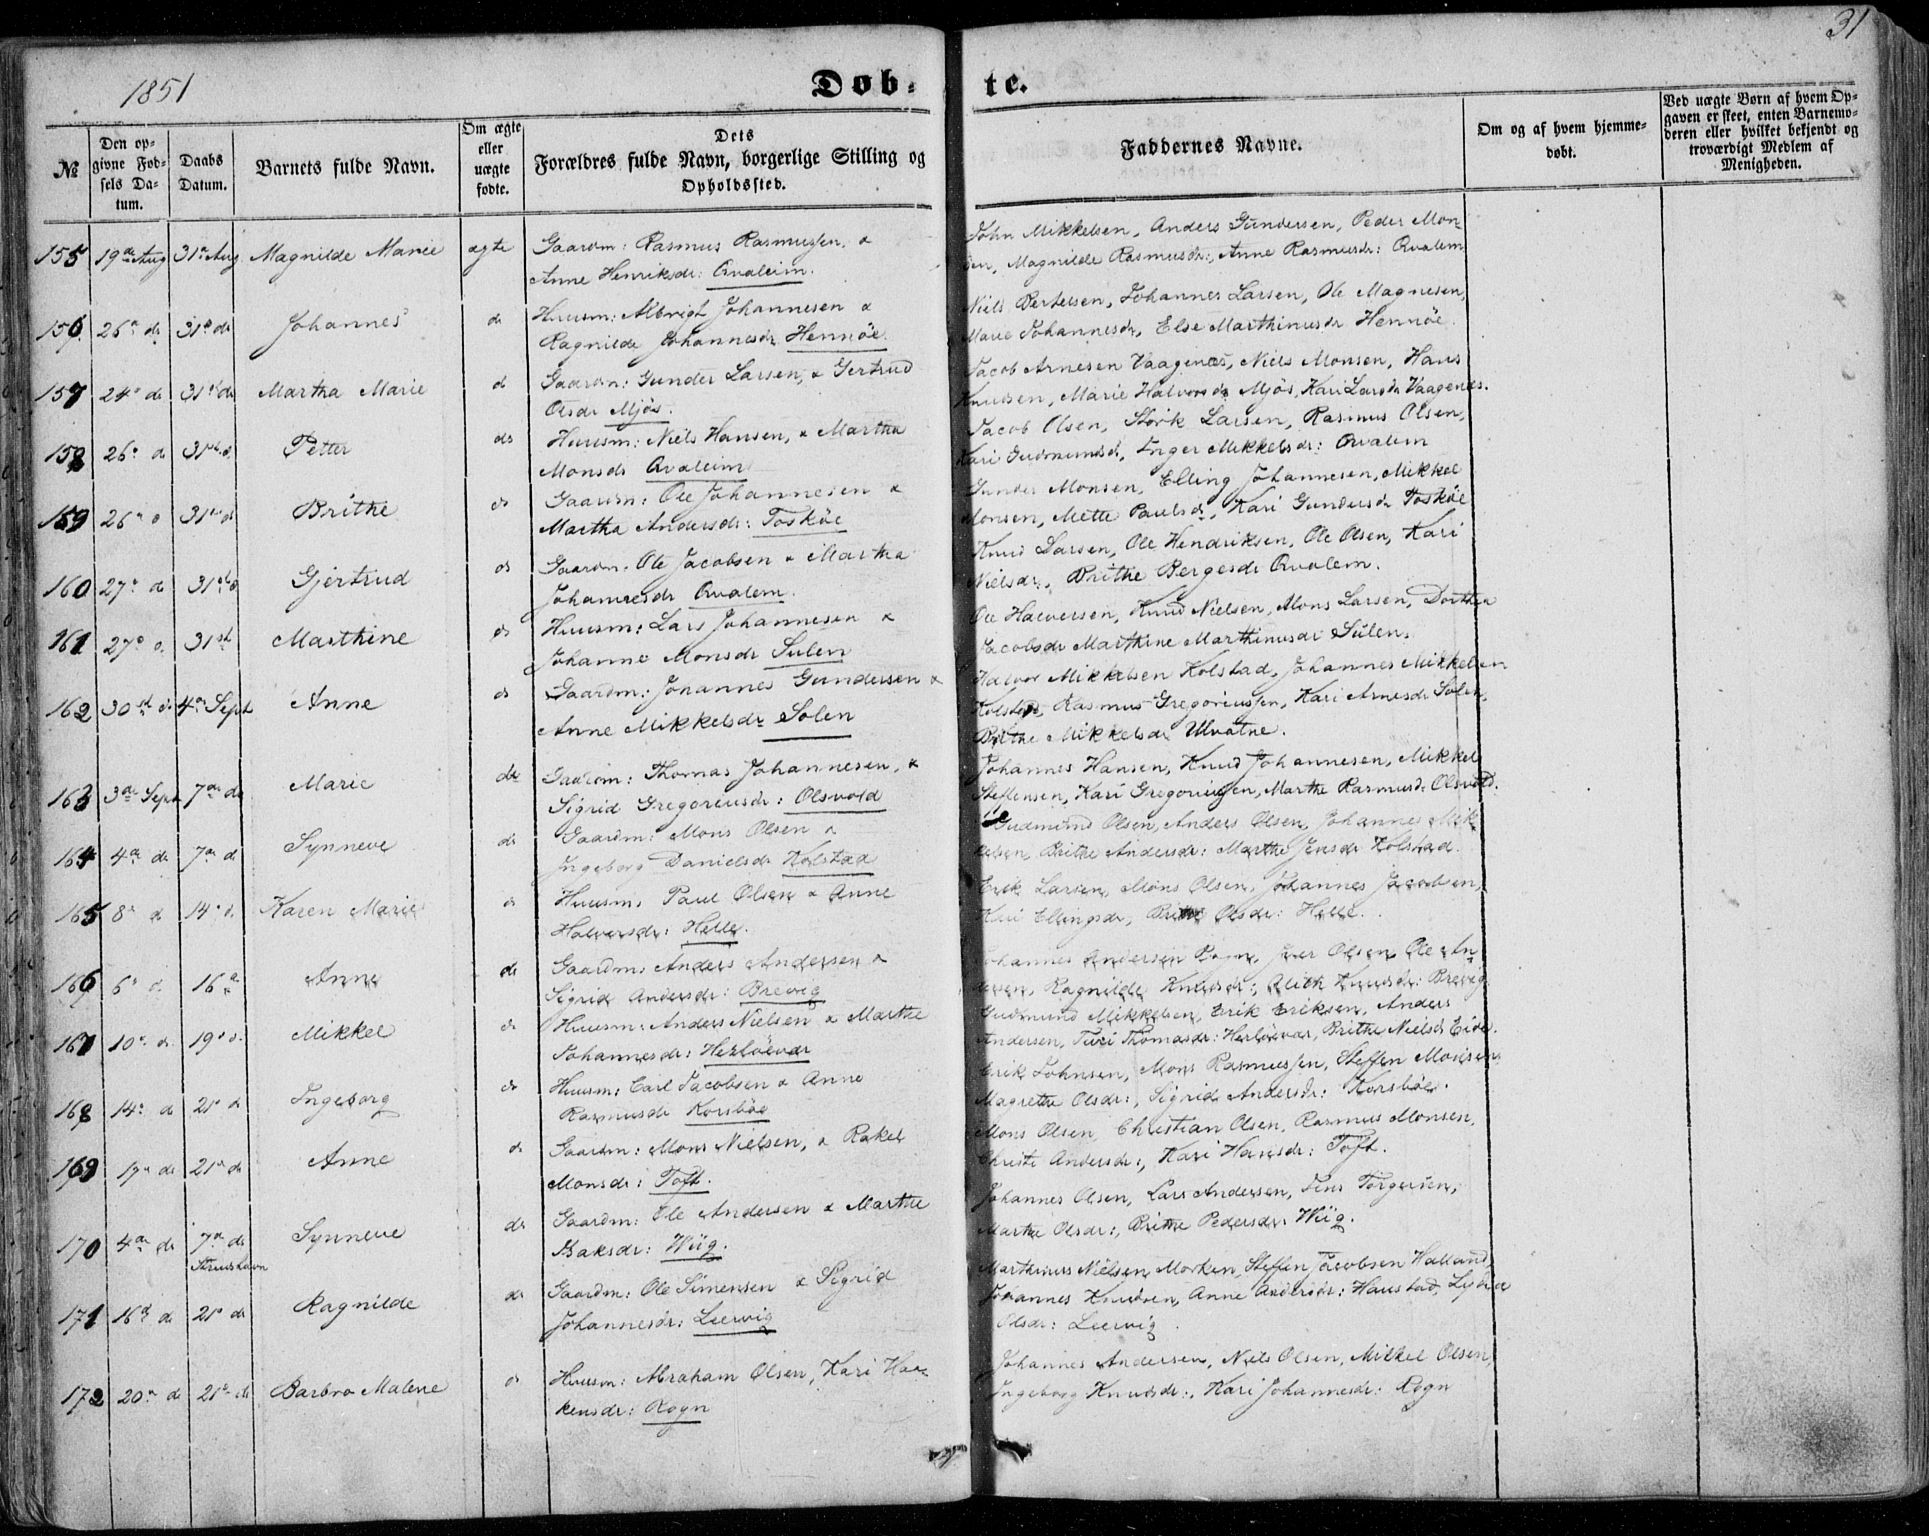 31
1851
Døb-
te.
№
Den op-
givne Fød-
sels Da-
tum.
Daabs
Datum.
Barnets fulde Navn.
Om ægte
eller
uægte
fødte.
Dets
Forældres fulde Navn, borgerlige Stilling og
Opholdssted.
Faddernes Navne.
Om og af hvem hjemme-
døbt.
Ved uægte Børn af hvem Op-
gaven er skeet, enten Barnemo-
deren eller hvilket bekjendt og
troværdigt Medlem af
Menigheden.
155 19de Aug 31te Aug Magnilde Marie ægte Gaardm: Rasmus Rasmussen, &
Anne Henriksdr: Qvaleim.
John Mikkelsen, Anders Gundersen, Peder Mon-
sen, Magnilde Rasmusdr:, Anne Rasmusdr: Qvalem
156 26 do 31 do Johannes do Huusm: Albrigt Johannesen &
Ragnilde Johannesdr Hennöe.
Niels Bertelsen, Johannes Larsen, Ole Magnesen,
Marie Johannesdr, Else Marthinusdr Hennöe.
157 24 do 31 do Martha Marie do Gaardm: Gunder Larsen, & Gertrud
Olsdr Mjös.
Jacob Arnesen Vaagenæs, Niels Monsen, Hans
Knudsen, Marie Halvorsdr Mjös, Kari Larsdr Vaagenes.
158 26 do 31 do Petter do Huusm: Niels Hansen, & Martha
Monsdr Qvaleim
Jacob Olsen, Störk Larsen, Rasmus Olsen,
Kari Gudmundsd, Inger Mikkelsdr: Qvalem
159 26 do 31 do Brithe do Gaardm: Ole Johannesen &
Martha Andersdr: Foskøe
Gunder Monsen, Elling Johannesen, Mikkel
Monsen, Mette Paulsdr, Kari Gundersdr Foskøe
160 27 do 31 do Gjertrud do Gaardm: Ole Jacobsen & Martha
Johannesdr Qvalem.
Knud Larsen, Ole Hendriksen, Ole Olsen, Kari
Nielsdr, Brithe Bergesdr Qvalem.
161 27 do 31st Marthine do Huusm: Lars Johannesen &
Johanne Monsdr Sulen
Ole Halversen, Knud Nielsen, Mons Larsen, Dorthea
Jacobsdr Marthine Marthinusdr Sulen.
162 30 do 4de Sept Anne do Gaardm: Johannes Gundersen &
Anne Mikkelsdr Solen
Halvor Mikkelsen Kolstad, Johannes Mikkelsen
Kolstad, Rasmus Gregoriussen, Kari Arnesdr Solen,
Brithe Mikkelsdr Ulvatne.
163 3de Sept 7de do Marie do Gaardm: Thomas Johannesen, &
Sigrid Gregoriusdr: Olsvold
Johannes Hansen, Knud Johannesen, Mikkel
Steffensen, Kari Gregoriussen, Marthe Rasmusdr Olsvold.
164 4de do 7de do Synneve do Gaardm: Mons Olsen &
Ingeborg Danielsdr Kolstad
Gudmund Olsen, Anders Olsen, Johannes Mik-
kelsen, Brithe Andersdr: Marthe Jensdr Kolstad.
165 8 do 14 do Karen Marie do Huusm, Paul Olsen & Anne
Halversdr: Helle.
Erik Larsen, Mons Olsen, Johannes Jacobsen,
Kari Ellingsdr, Brithe Olsdr: Helle.
166 6 do 16de Anne do Gaardm: Anders Andersen &
Sigrid Andersdr: Brevig
Johannes Andersen Rogn, Iver Olsen, Ole An-
dersen, Ragnilde Knudsdr:, Alith Knudsdr: Brevig
167 10 do 19 do Mikkel do Huusm: Anders Nielsen & Marthe
Johannesdr: Herlöevær
Gudmund Mikkelsen, Erik Eriksen, Anders
Andersen, Turi Thomasdr: Herlöevær, Brithe Nielsdr Eide.
168 14 do 21 do Ingeborg do Huusm: Carl Jacobsen & Anne
Rasmusdr Korsböe
Erik Johnsen, Mons Rasmussen, Steffen Monsen,
Magrethe Olsdr:, Sigrid Andersdr: Korsböe.
169 17 do 21 do Anne do Gaardm: Mons Nielsen, & Rakel
Monsdr: Toft.
Mons Olsen, Christian Olsen, Rasmus Monsen,
Christi Andersdr:, Kari Hansdr: Toft.
170 4de do 7de do Synneve do Gaardm: Ole Andersen & Marthe
Isaksdr: Wiig.
Johannes Olsen, Lars Andersen, Jens Torgersen,
Marthe Olsdr:, Brithe Pedersdr: Wiig.
171 16 do 21 do Ragnilde do Gaardm: Ole Simensen & Sigrid
Johannesdr: Leervig
Marthinus Nielsen Morken, Steffen Jacobsen Halland,
Johannes Knudsen, Anne Andersdr: Haustad, Lydia
Olsdr: Leervig.
172 20 do 21 do Barbro Malene do Huusm: Abraham Olsen, Kari Haa-
kensdr: Rogn
Johannes Andersen, Niels Olsen, Mikkel Olsen,
Ingeborg Knudsdr:, Kari Johannesdr: Rogn